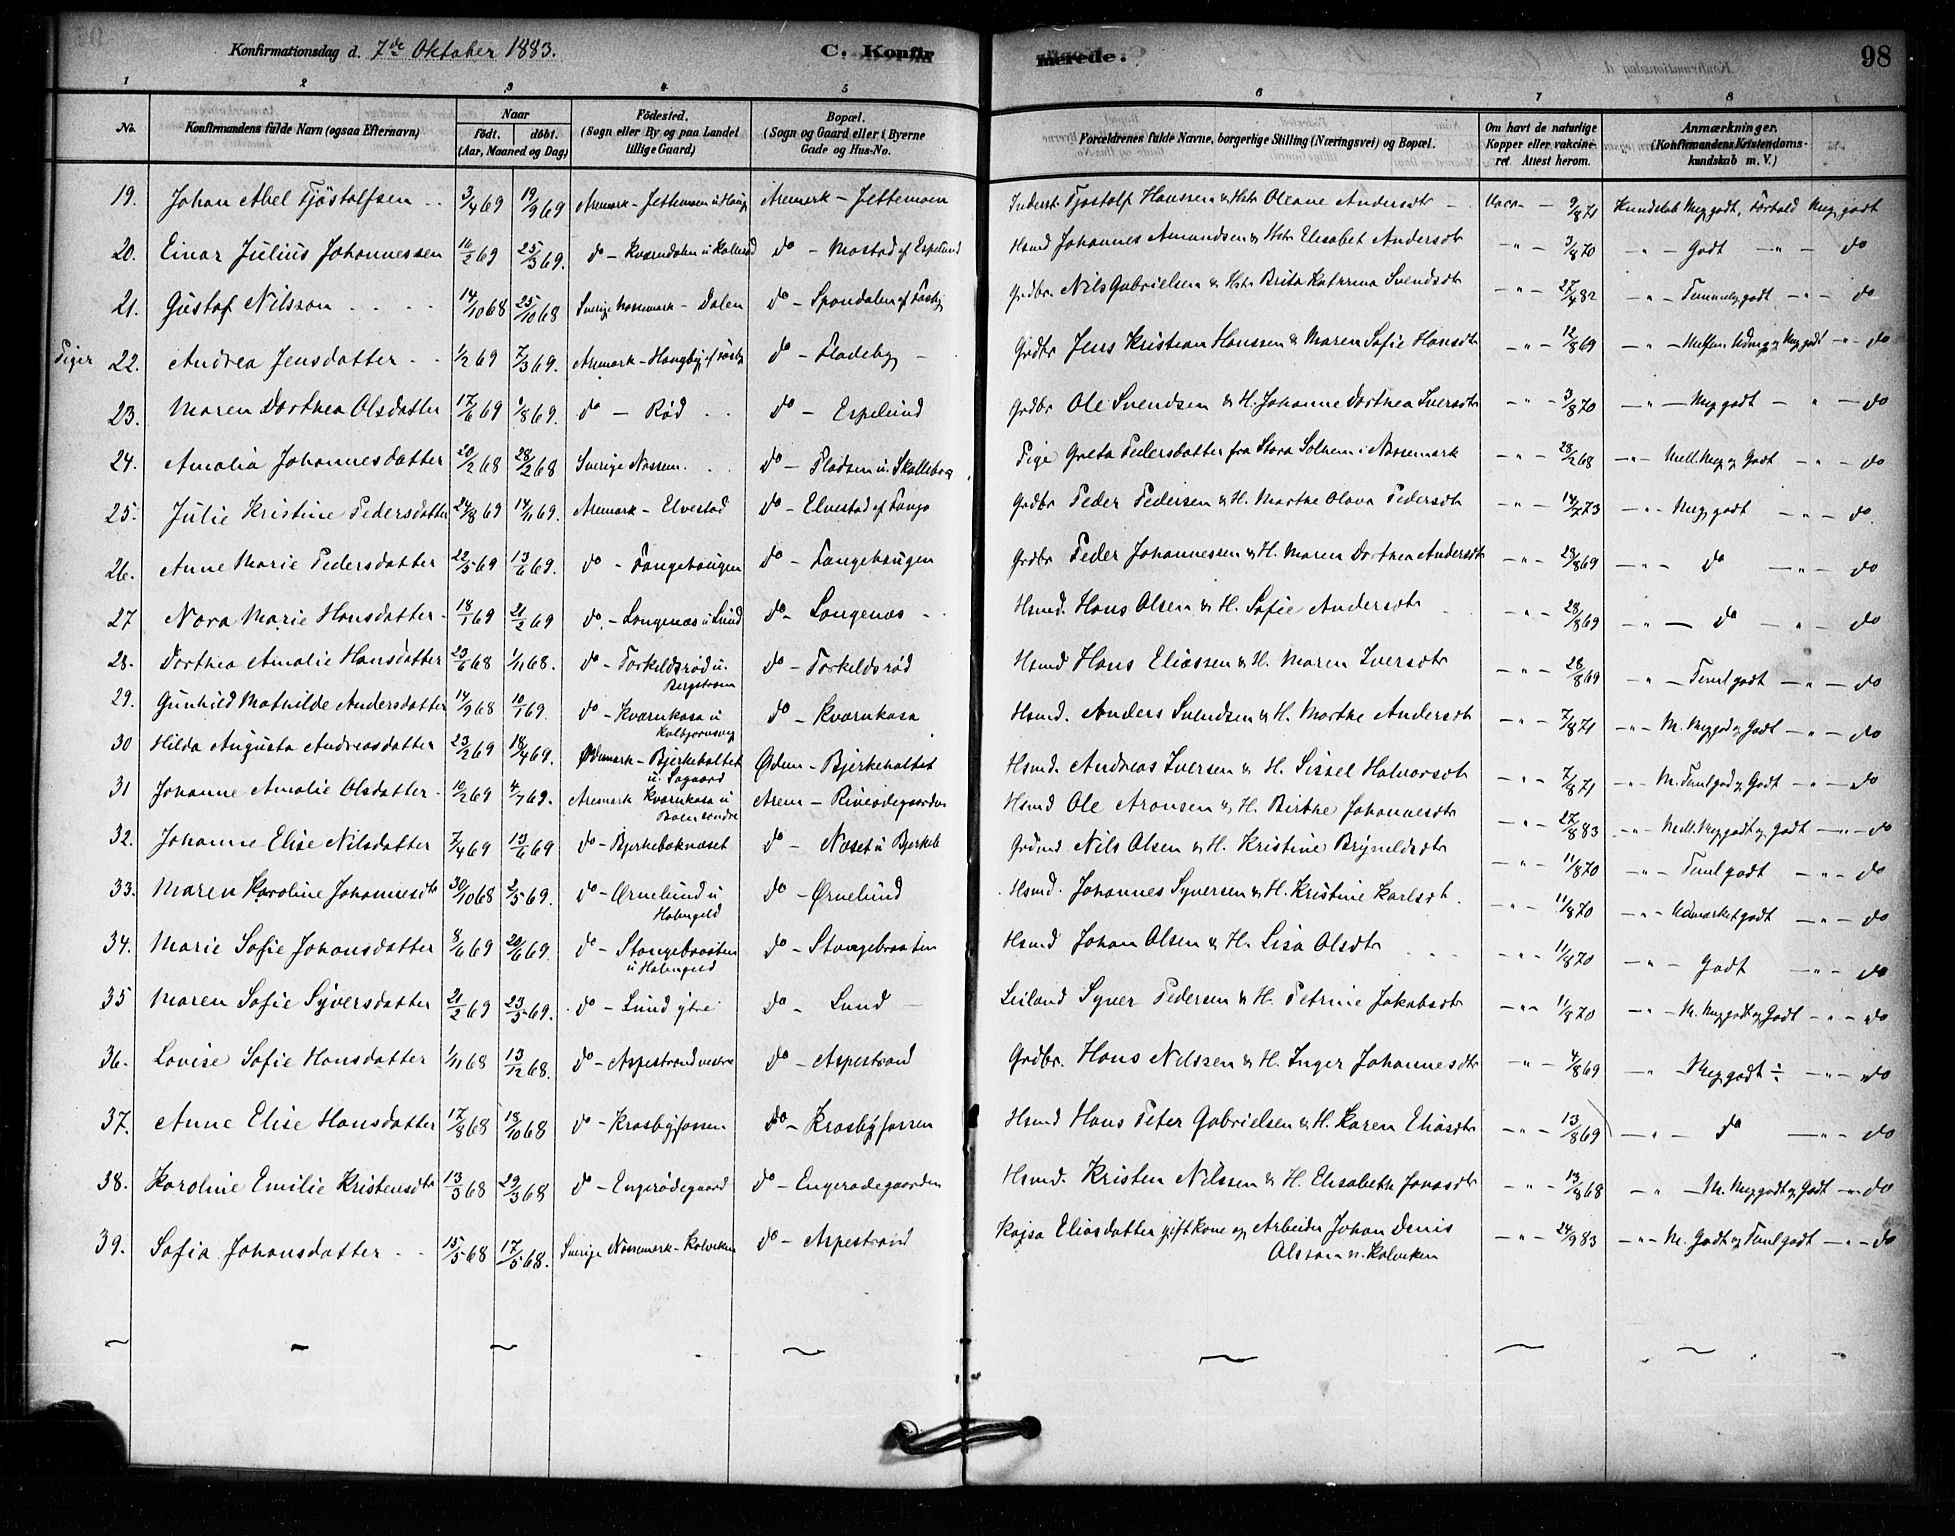 Konfirmationsdag d. 7de Oktober 1883. C. Konfirmerede. 98
1 2 3 4 5 6 7 8
No. Konfirmandens fulde Navn (ogsaa Efternavn) Naar født. døbt. (Aar, Maaned og Dag) Fødested. (Sogn eller By og paa Landet tillige Gaard) Bopæl. (Sogn og Gaard eller i Byerne Gade og Hus-No. Forældrenes fulde Navne, borgerlige Stilling (Næringsvei) og Bopæl. Om havt de naturlige Kopper eller vakcineret. Attest herom. Anmærkninger. (Konfirmandens Kristendomskundskab m. V.)
19. Johan Abel Tjøstolfsen 3/4 69 19/9 69 Aremark - Jettemoen u Hauge Aremark - Jettemoen Inderst Tjøstolf Hanssen & Hstr Oleane Andersdtr Vacc. - 9/8 71 Kundskab Meg. godt, Forhold Meg. godt
20. Einar Julius Johannessen 16/2 69 25/3 69. do - Kværndalen u Kollerød do - Mostad af Espelund Hsmd Johannes Amundsen & Hstr Elisabet Andersdtr -"- 3/8 70 -"- Godt -"- do
21. Gustaf Nilsson 14/10 68 25/10 68 Sverige Nossemark - Dalen do - Spondalen af Fosby Grdbr. Nils Gabrielsen & Hstr Brita Katrina Svendsdtr -"- 27/4 82 -"- Temmelig godt -"- do
Piger 22. Andrea Jensdatter 1/2 69 7/3 69. Aremark - Haugby af Fosby do - Fladeby Grdbr Jens Kristian Hanssen & Maren Sofie Hansdtr -"- 12/8 69 -"- Mellem Udm. og Meg. godt -"- do
23. Maren Dorthea Olsdatter 17/6 69 1/8 69. do - Rød do - Espelund Grdbr Ole Svendsen & H. Johanne Dorthea Iversdtr -"- 3/8 70 -"- Meg. godt -"- do
24. Amalia Johannesdatter 20/2 68 28/2 68 Sverige Nossem. do - Fladsm u. Skalleborg Pige Greta Pedersdatter fra Stora Solhem i Nossemark -"- 28/2 68 -"- Mell. Meg. og Godt -"- do
25. Julie Kristine Pedersdatter 24/8 69 14/11 69. Aremark - Elvestad do - Elvestad af Tange Grdbr Peder Pedersen & H. Marthe Olava Pedersdtr -"- 14/7 73 -"- Meg. godt -"- do
26. Anne Marie Pedersdatter 22/5 69 13/6 69. do - Tangehaugen do - Tangehaugen Grdbr Peder Johannessen & H. Maren Dorthea Andersdtr -"- 29/8 69 -"- do -"- do
27 Nora Marie Hansdatter 18/1 69 21/2 69 do - Langenæs u Lund do - Langenæs Hsmd. Hans Olsen & H. Sofie Andersdtr -"- 28/8 69 -"- do -"- do
28. Dorthea Amalie Hansdatter 23/6 68 1/11 68. do - Torkildsrød u. Bergstrøm do - Torkildsrød Hsmd Hans Eliassen & H. Maren Iversdtr -"- 28/8 69 -"- Teml. godt -"- do
29. Gunhild Mathilde Andersdatter 14/9 68 10/1 69. do - Kværnkasa u Kolbjørnsvig do - Kværnkasa Hsmd. Anders Svendsen & H. Marthe Andersdtr -"- 7/8 71 -"- M. Meg. god og Godt -"- do
30 Hilda Augusta Andreasdatter 23/2 69 18/4 69. Ødemark - Bjerkeholtet u. Sagaard Ødem - Bjerkeholtet Hsmd. Andreas Iversen & H. Sissel Halvorsdtr -"- 7/8 71 -"- M. Teml. god og Godt -"- do
31 Johanne Amalie Olsdatter 16/2 69 4/7 69. Aremark Kværnkasa u Bøen søndre Arem - Riverødegaarden Hsmd Ole Aronsen & H. Birthe Johannesdtr -"- 27/8 83 -"- Mell. Meg. godt og Godt -"- do
32. Johanne Elise Nilsdatter 7/4 69 13/6 69 do - Bjerkebæknæset do - Næset u Bjerkeb Grdmd Nils Olsen & H. Kristine Brynildsdtr -"- 11/8 70 -"- Teml. godt -"- do
33. Maren Karoline Johannesdtr 30/10 68 2/5 69. do - Ørnelund u Holmgeld do - Ørnelund Hsmd. Johannes Syversen & H. Kristine Karlsdtr. -"- 11/8 70 -"- Udmærket godt -"- do
34. Marie Sofie Johansdatter 8/4 69 20/6 69. do - Stangebraaten u Holmgeld do - Stangebraaten Hsmd Johan Olsen & H. Lisa Olsdtr -"- 11/8 70 -"- Godt -"- do
35 Maren Sofie Syversdatter 21/2 69 23/5 69. do - Lund ytre do - Lund Leiland Syver Pedersen & H. Petrine Jakobsdtr -"- 11/8 70 -"- M. Meg. godt og Godt -"- do
36. Lovise Sofie Hansdatter 1/11 68 13/12 68. do - Aspestrand vestre do - Aspestrand Grdbr. Hans Nilssen & H. Inger Johannesdtr -"- 4/8 69 -"- Meg. godt ÷ -"- do
37. Anne Elise Hansdatter 17/8 68 18/10 68 do - Krosbyfossen do - Krosbyfossen Hsmd Hans Peter Gabrielsen & H. Karen Eliasdtr -"- 13/8 69 -"- do -"- do
38. Karoline Emilie Kristensdtr 13/3 68 29/3 68 do - Engerødegaard do - Engerødegaarden Hsmd. Kristen Nilssen & H. Elisabeth Jonasdtr -"- 13/8 68 -"- M. Meg. godt og Godt -"- do
39. Sofia Johansdatter 15/5 68 17/5 68. Sverige Nossemark - Kalviken do - Aspestrand Kajsa Eliasdatter gift Kone og Arbeider Johan Denis Alsson n. Kalviken -"- 24/9 83 -"- M. Godt og Teml. godt -"- do